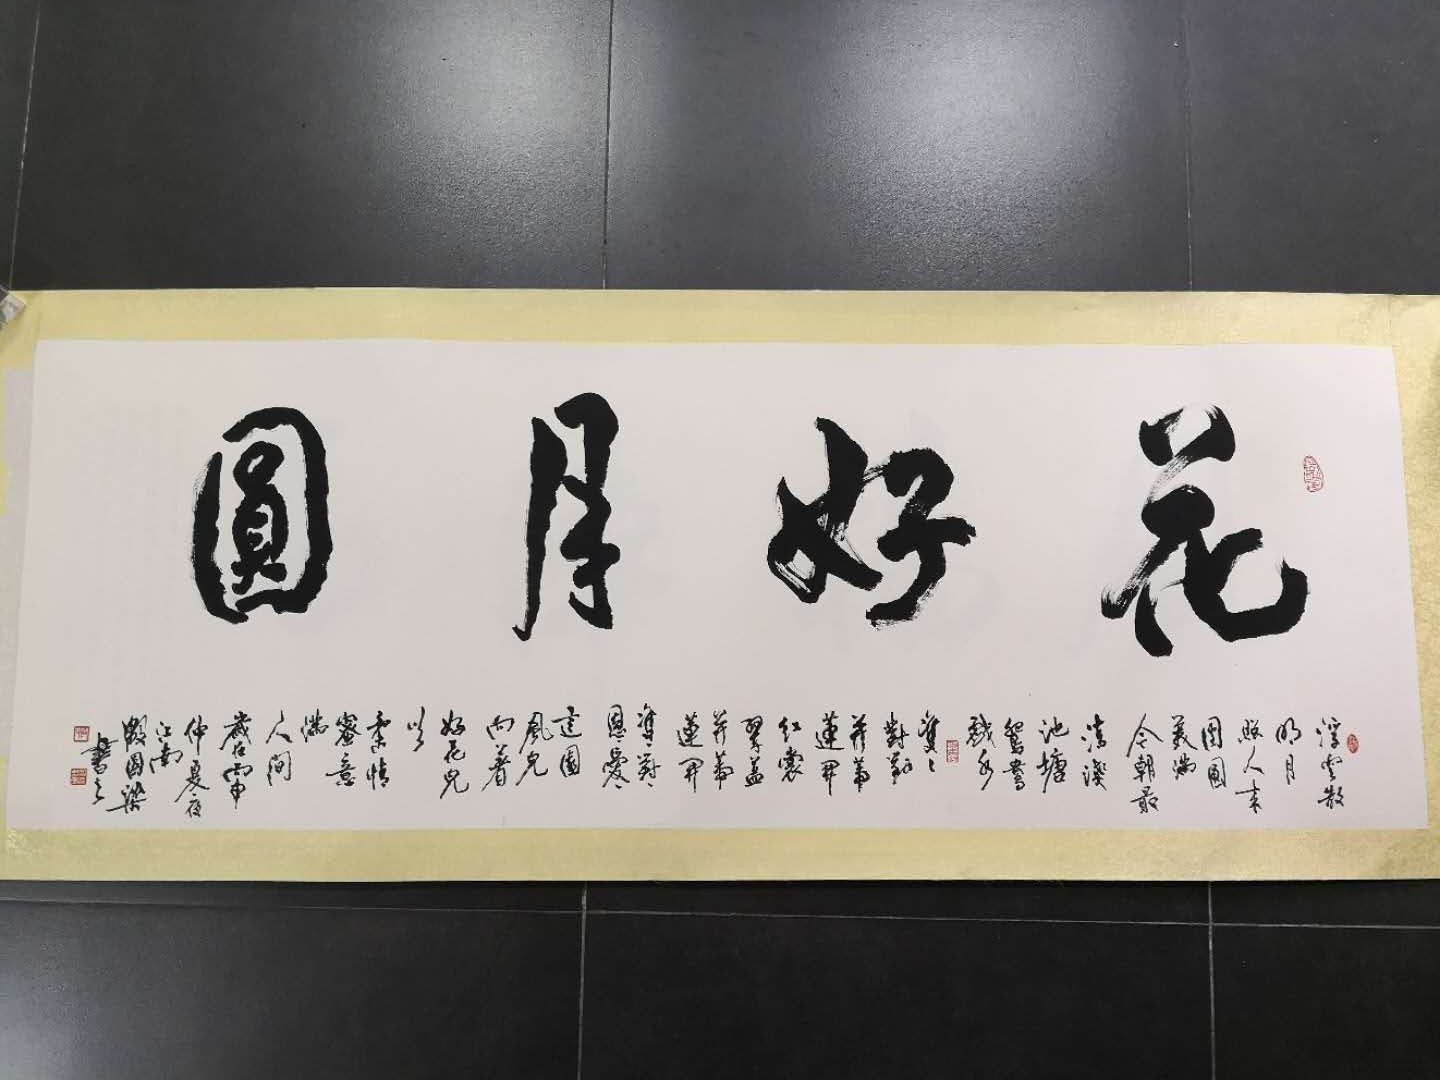 花好月圓
浮雲散
明月
照人来
團圓
美滿
今朝最
清淺
池塘
鴛鴦
戲水
雙〻
對對
紅裳
翠蓋
並蒂
蓮開
雙〻對〻
恩〻愛〻
這園
風兒
向着
好花兒
柔情
蜜意
滿
人間
歲在丙申
仲夏夜
江南
殷國梁
書之